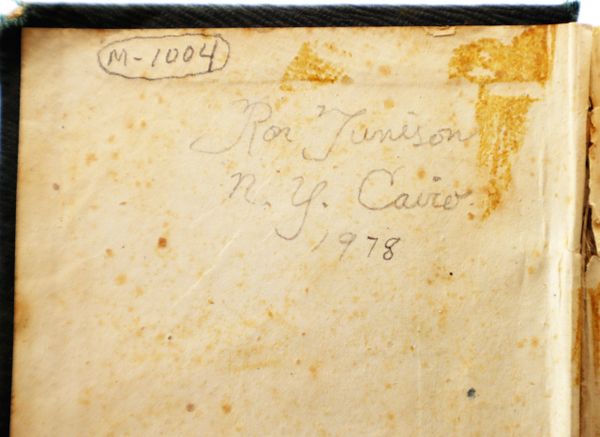 M-1004
Ron Tunison
N. Y. Cairo
1978